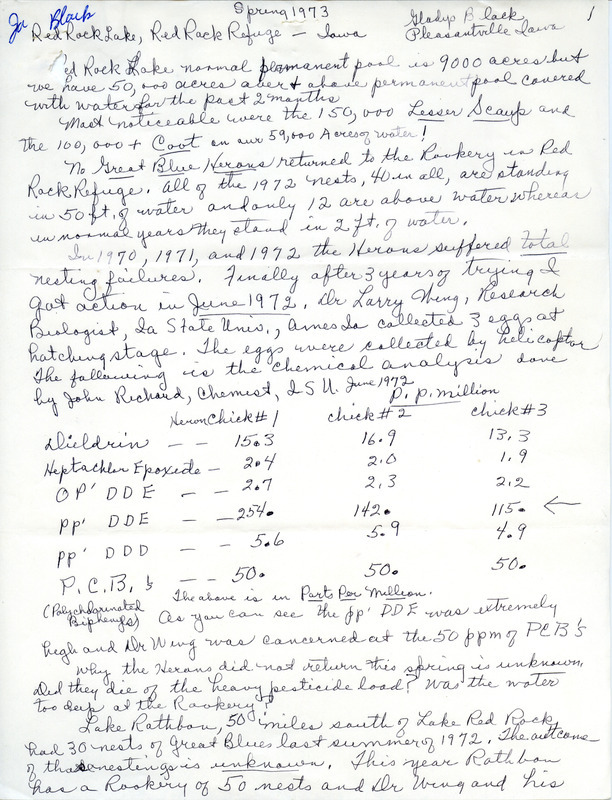 Ia Black
Spring 1973
Gladys Black
1
Red Rock Lake, Red Rock Refuge — Iowa
Pleasantville Iowa
Red Rock Lake normal permanent pool is 9000 acres but
we have 50,000 acres over & above permanent pool covered
with water for the past 2 months
Most noticeable were the 150,000 Lesser Scaup and
the 100,000 + Coot on our 59,000 Acres of water!
No Great Blue Herons returned to the Rookery in Red
Rock Refuge. All of the 1972 nests, 40 in all, are standing
in 50 ft. of water and only 12 are above water whereas
in normal years they stand in 2 ft. of water.
In 1970, 1971, and 1972 the Herons suffered total
nesting failures. Finally after 3 years of trying I
got action in June 1972. Dr Larry Wing, Research
Biologist, Ia State Univ., Ames Ia collected 3 eggs at
hatching stage. The eggs were collected by helicopter
The following is the chemical analysis done
by John Richard, Chemist, I S U. June 1972
P. p. million
Heron Chick #1 chick #2 chick #3
Dieldrin — — 15.3 16.9 13.3
Heptachlor Epoxide — 2.4 2.0 1.9
OP' DDE — — 2.7 2.3 2.2
pp' DDE — 254. 142. 115. ←
pp' DDD — — 5.6 5.9 4.9
P.C.B.'s — — 50. 50. 50.
The above is in Parts Per Million.
(Polychlorinated
Biphenyls) As you can see the pp' DDE was extremely
high and Dr Wing was concerned at the 50 ppm of PCB's
Why the Herons did not return this spring is unknown.
Did they die of the heavy pesticide load? Was the water
too deep at the Rookery?
Lake Rathbon, 50 miles south of Lake Red Rock,
had 30 nests of Great Blues last summer of 1972. The outcome
of those nestings is unknown. This year Rathbon
has a Rookery of 50 nests and Dr Wing and his